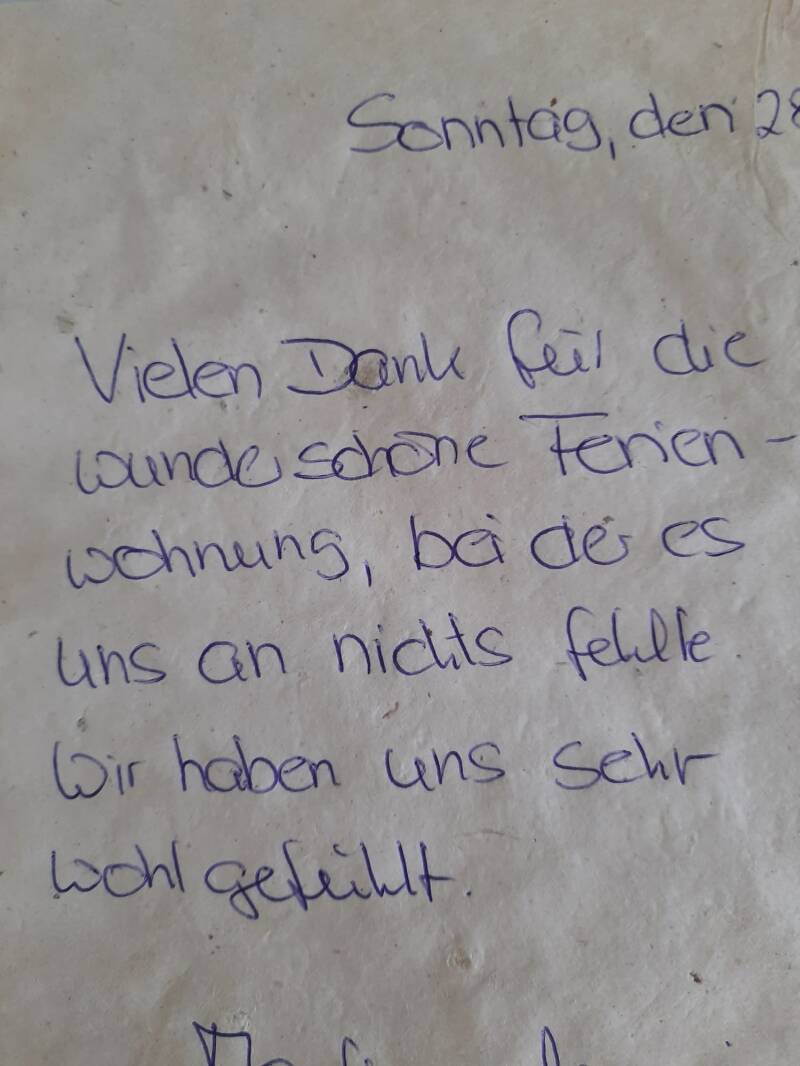 Sonntag, den 28
Vielen Dank für die
wunderschöne Ferien-
wohnung, bei der es
uns an nichts fehlte.
Wir haben uns sehr
wohl gefühlt.